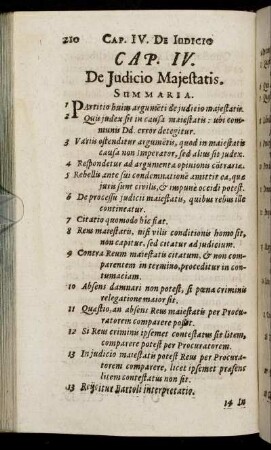 210 CAP. IV. DE IUDICIO
CAP. IV.
De Judicio Majestatis.
SUMMARIA.
1 Partitio huius argumēti de judicio majestatis.
2 Quis judex sit in causa maiestatis: ubi com-
munis Dd. error detegitur.
3 Variis ostenditur argumētis, quod in maiestatis
causa non Imperator, sed alius sit judex.
4 Respondetur ad argumenta opinionis cōtrariæ.
5 Rebellis ante sui condemnationē amittit ea, quæ
juris sunt civilis, & impune occidi potest.
6 De processu judicii maiestatis, quibus rebus ille
contineatur.
7 Citatio quomodo hic fiat.
8 Reus maiestatis, nisi vilis conditionis homo sit,
non capitur, sed citatur ad judicium.
9 Contra Reum maiestatis citatum, & non com-
parentem in termino, proceditur in con-
tumaciam.
10 Absens damnari non potest, si pœna criminis
relegatione maior sit.
11 Quæstio, an absens Reus maiestatis per Procu-
ratorem comparere possit.
12 Si Reus criminis ipsemet contestatus sit litem,
comparere potest per Procuratorem.
13 In judicio maiestatis potest Reus per Procura-
torem comparere, licet ipsemet præsens
litem contestatus non sit.
13 Rejicitur Bartoli interpretatio.
14 In